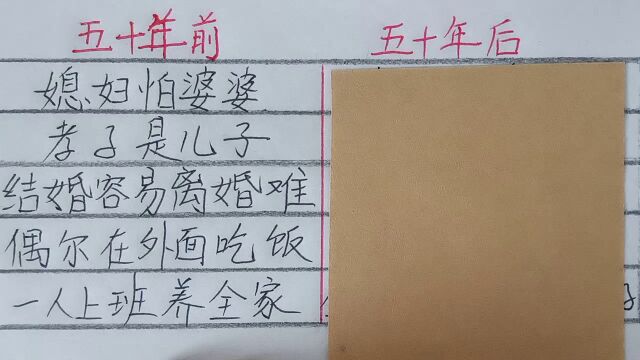 五十年前 五十年后
媳妇怕婆婆
孝子是儿子
结婚容易离婚难
偶尔在外面吃饭
一人上班养全家